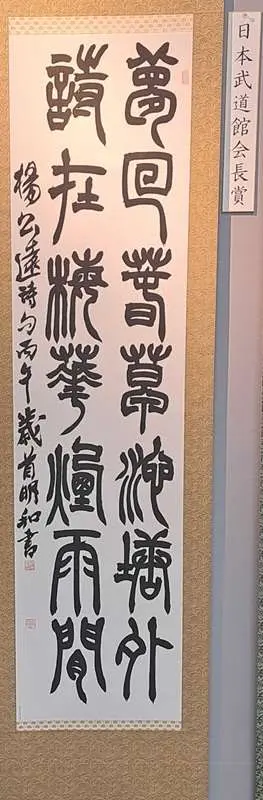 日本武道館会長賞
夢回春草池塘外
詩在梅華煙雨間
楊公遠詩句丙午歲首明和書